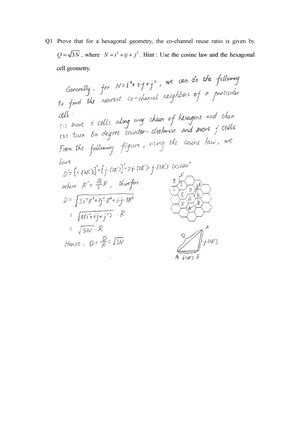 Q1. Prove that for a hexagonal geometry, the co-channel reuse ratio is given by
Q=√3N , where N=i²+ij+j². Hint : Use the cosine law and the hexagonal
cell geometry.
Generally, for N=i²+ij+j², we can do the following
to find the nearest co-channel neighbors of a particular
cell:
(1) move i cells along any chain of hexagons and then
(2) turn 60 degree counter-clockwise and move j cells
From the following figure, using the cosine law, we
have
D²=[i·(2R')]²+[j·(2R')]²-2i·(2R')·j·(2R')·cos120°
where R'=√3/2 R, therefore
D=√3i²R²+3j²R²+ij·3R²
=√3(i²+ij+j²)·R
=√3N·R
Hence, Q=D/R=√3N
D
j·(2R')
A i·(2R') B